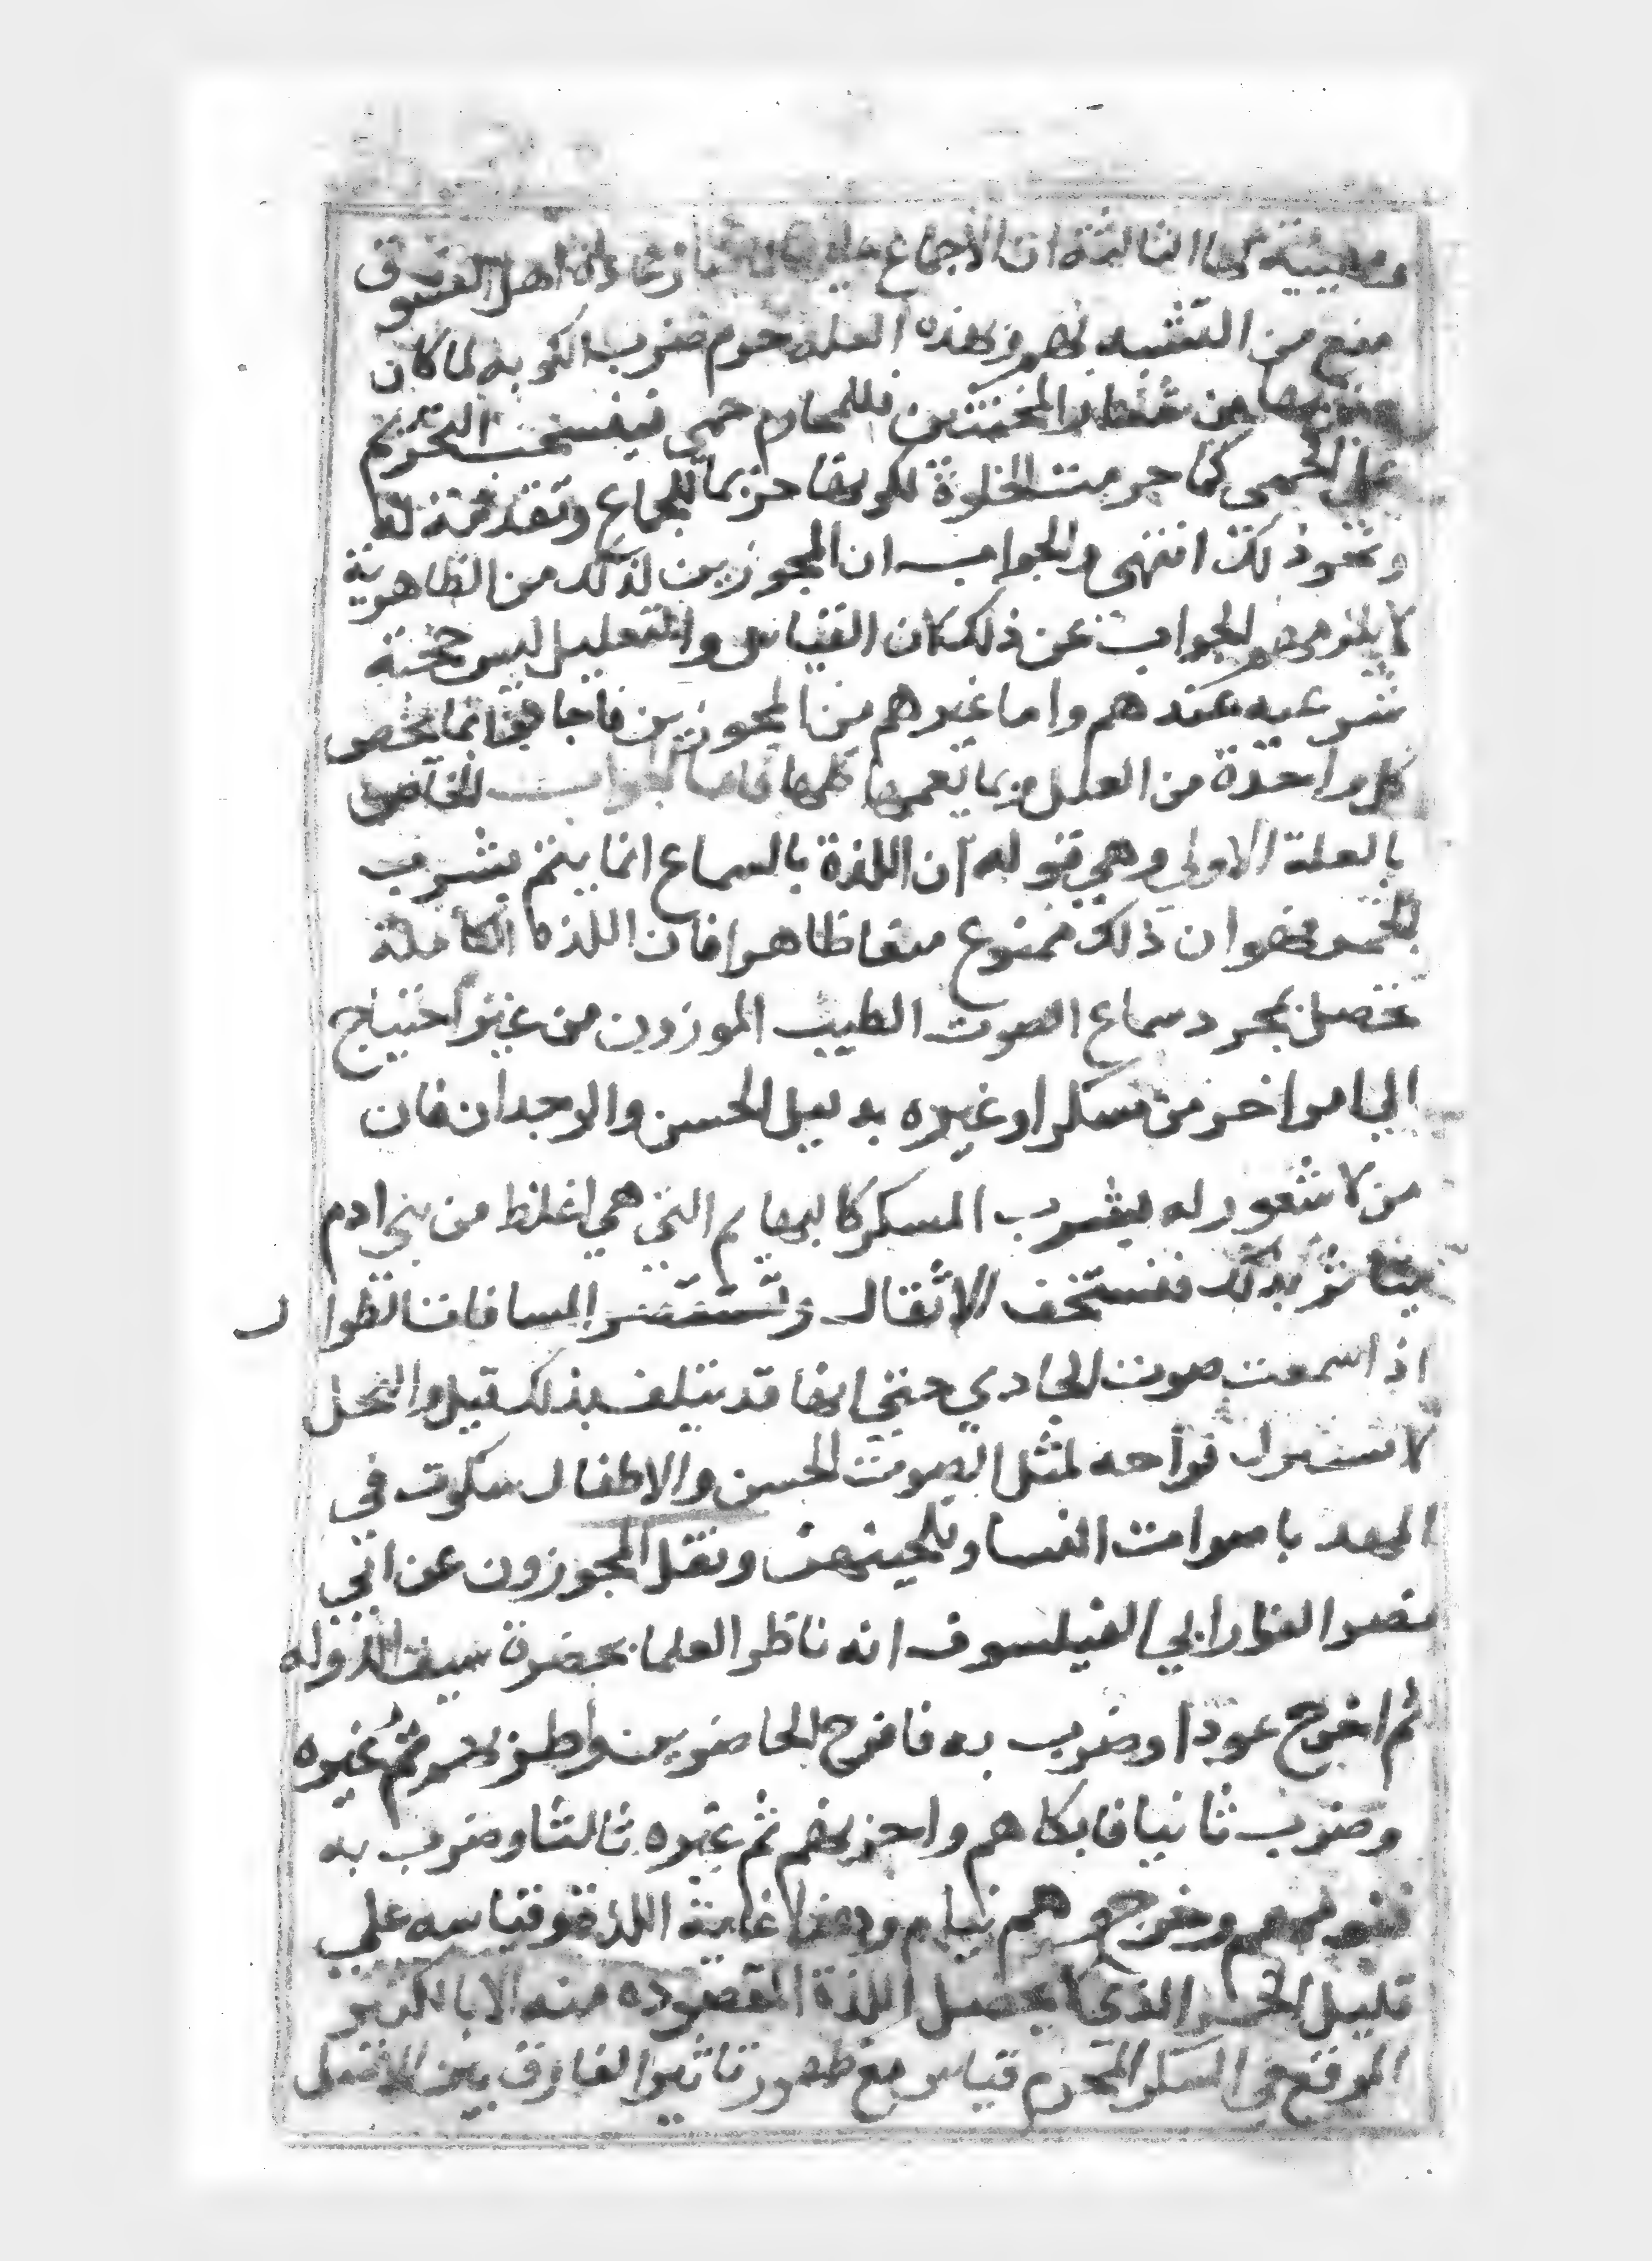 الثالثة ان الاجماع عليها لما صار عادة اهل الفسوق
منع من التشبه بهم وبهذه العلة حرم ضرب الكوبه لما كان
ضربها من شعار المخنثين فللمحارم حمى فينسحب التحريم
على الحمى كما حرمت الخلوة لكونها حريما للجماع ومقدمة له
ونحو ذلك انتهى والجواب ان المجوزين لذلك من الظاهرية
لا يلزمهم الجواب عن ذلك كان القياس والتعليل ليس حجة
شرعيه عندهم واما غيرهم من المجوزين فاجابوا بما يخص
كل واحدة من العلل وبما يعمها كلها فاما الجواب الخاص
بالعلة الاولى وهي قوله ان اللذة بالسماع انما يتم بشرب
الخمر فهو ان ذلك ممنوع منعا ظاهرا فان اللذه الكاملة
تحصل بمجرد سماع الصوت الطيب الموزون من غير احتياج
الى امر اخر من مسكر او غيره بدليل الحسن والوجدان فان
من لا شعور له بشرب المسكر كالبهايم التي هي اغلظ من بني ادم
يتاثر بذلك فتستخف الاثقال وتستقصر المسافات الطوال
اذا سمعت صوت الحادي حتى انها قد تتلف بذلك قيل والنحل
لا تستنزل بمثل الصوت الحسن والاطفال سكوت في
المهد باصوات النسا وتلحينهن ونقل المجوزون عن ابي
نصر الفارابي الفيلسوف انه ناظر العلما بحضرة سيف الدوله
ثم اخرج عودا وضرب به فافرح الحاضرين واطربهم ثم غيره
وضرب ثانيا فابكاهم واحزنهم ثم غيره ثالثا وضرب به
فنومهم وخرج وهم نيام وهذا غاية اللذة وقياسه على
قليل الخمر الذي لا يحصل اللذة المقصوده منه الا بالكثير
الموقع في السكر المحرم قياس مع ظهور تاثير الفارق بين الاصل